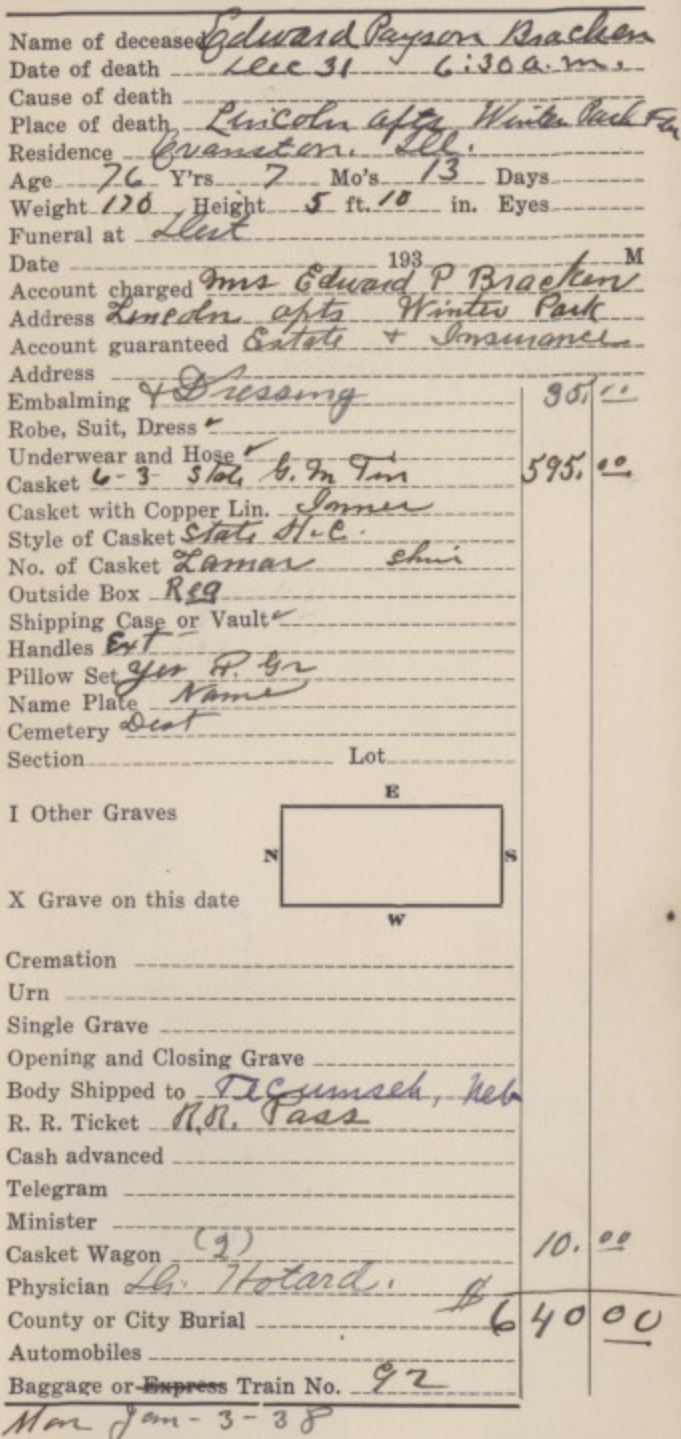 Name of deceased Edward Payson Bracken
Date of death Dec 31 6:30 a.m.
Cause of death
Place of death Lincoln apts Winter Park Fla
Residence Evanston. Ill.
Age 76 Y'rs 7 Mo's 13 Days
Weight 170 Height 5 ft. 10 in. Eyes
Funeral at Dest
Date 193 M
Account charged Mrs Edward P Bracken
Address Lincoln apts Winter Park
Account guaranteed Estate + Insurance
Address
Embalming & Dressing 35.00
Robe, Suit, Dress ✓
Underwear and Hose ✓
Casket 6-3 State G. M Tin 595.00
Casket with Copper Lin. Inner
Style of Casket State H.C.
No. of Casket Lamar
Outside Box Reg
Shipping Case or Vault ✓
Handles Ext
Pillow Set Yes R. Gr
Name Plate Name
Cemetery Dest
Section Lot
E
I Other Graves
N S
X Grave on this date
W
Cremation
Urn
Single Grave
Opening and Closing Grave
Body Shipped to Tecumseh, Neb
R. R. Ticket R.R. Pass
Cash advanced
Telegram
Minister
Casket Wagon (2) 10.00
Physician Dr. Hotard.
County or City Burial $640 00
Automobiles
Baggage or Express Train No. 92
Mon Jan-3-38